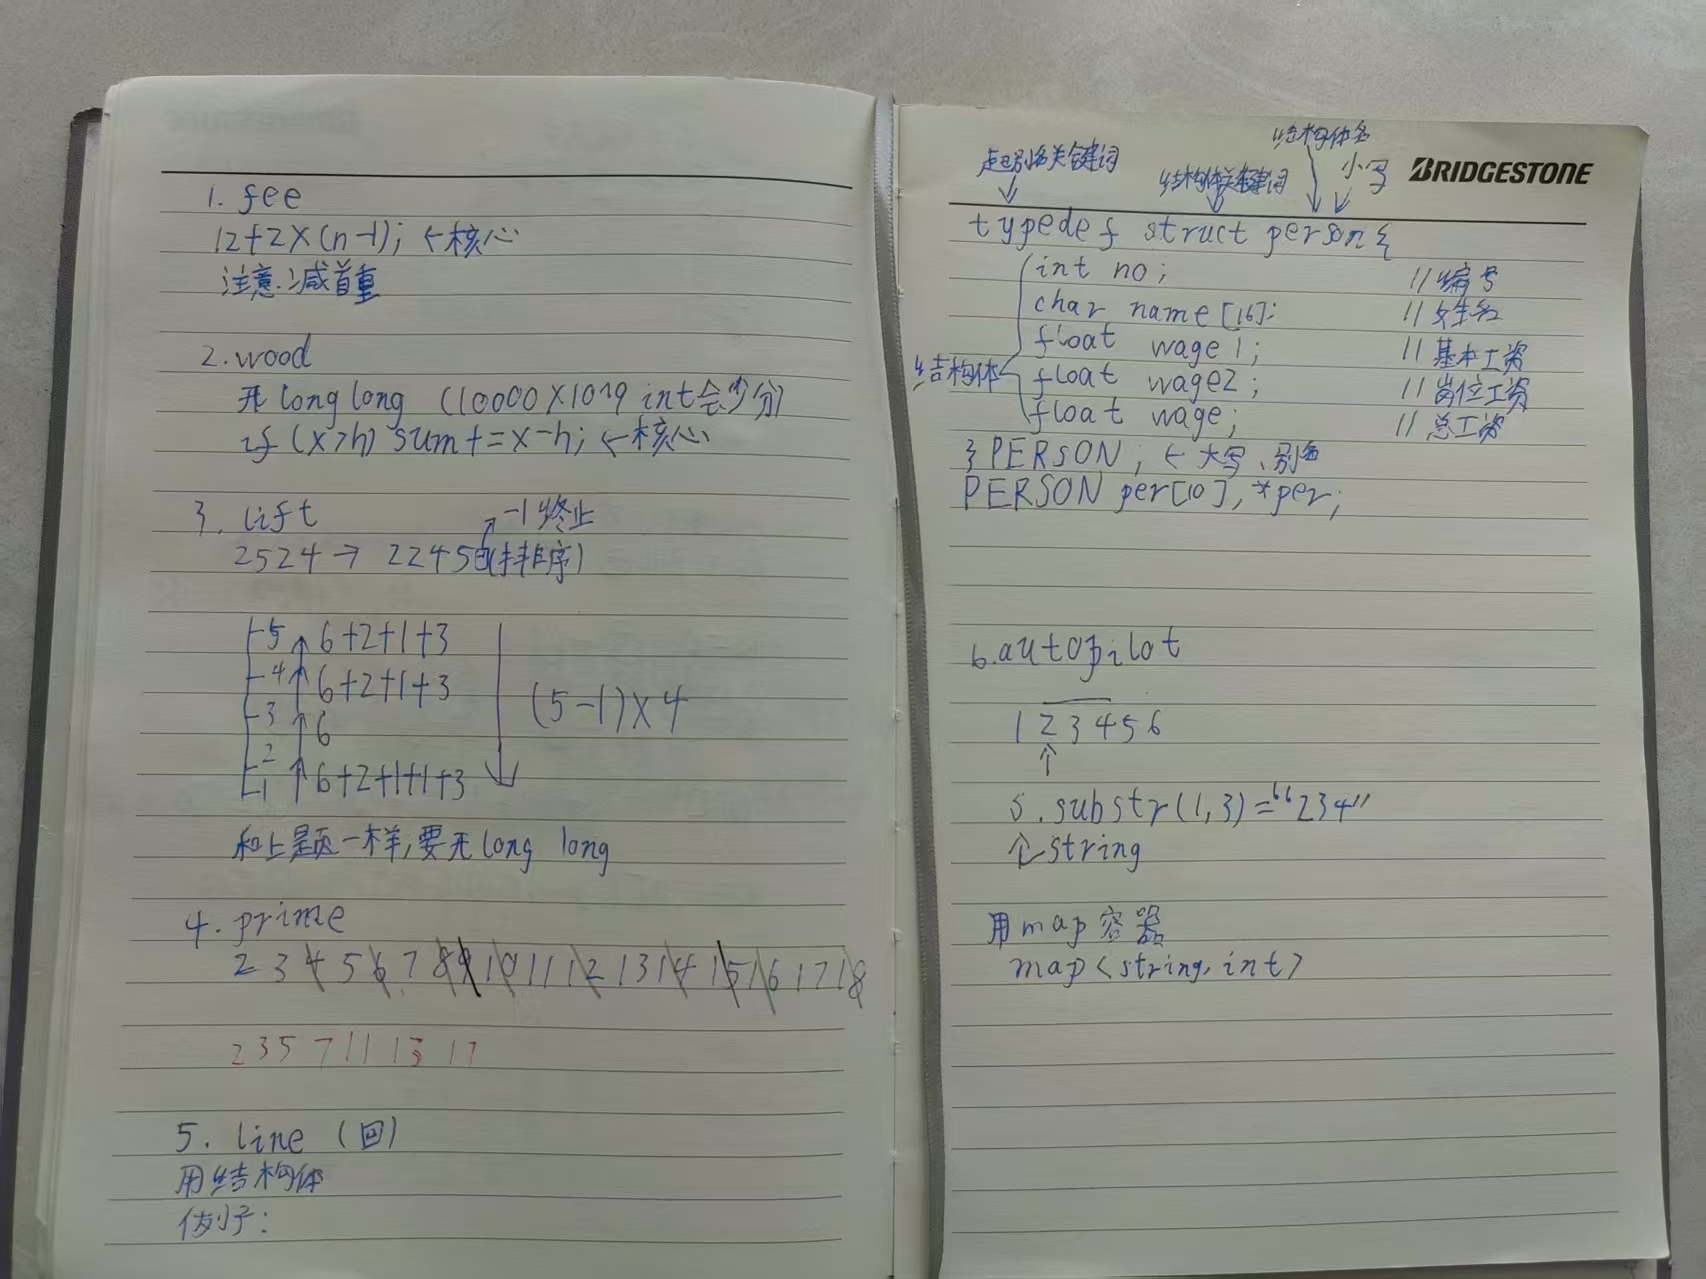 1. fee
12+2×(n-1); ←核心
注意:减首重
2. wood
开long long (10000×1019 int会少分)
if (x>h) sum+=x-h; ←核心
3. lift
-1终止
2524 → 22450(排序)
5 6+2+1+3
4 6+2+1+3
3 6
(5-1)×4
2
1 6+2+1+1+3
和上题一样,要开long long
4. prime
2 3 4 5 6 7 8 9 10 11 12 13 14 15 16 17 18
2 3 5 7 11 13 17
5. line (回)
用结构体
例子:
结构体名
起别名关键词
结构体关键词
小写
BRIDGESTONE
typedef struct person{
int no; //编号
char name[16]: //姓名
float wage1; //基本工资
结构体
float wage2; //岗位工资
float wage; //总工资
} PERSON; ← 大写、别名
PERSON per[10], *per;
6. autopilot
1 2 3 4 5 6
↑
s.substr(1,3)=“234”
↑string
用map容器
map<string,int>